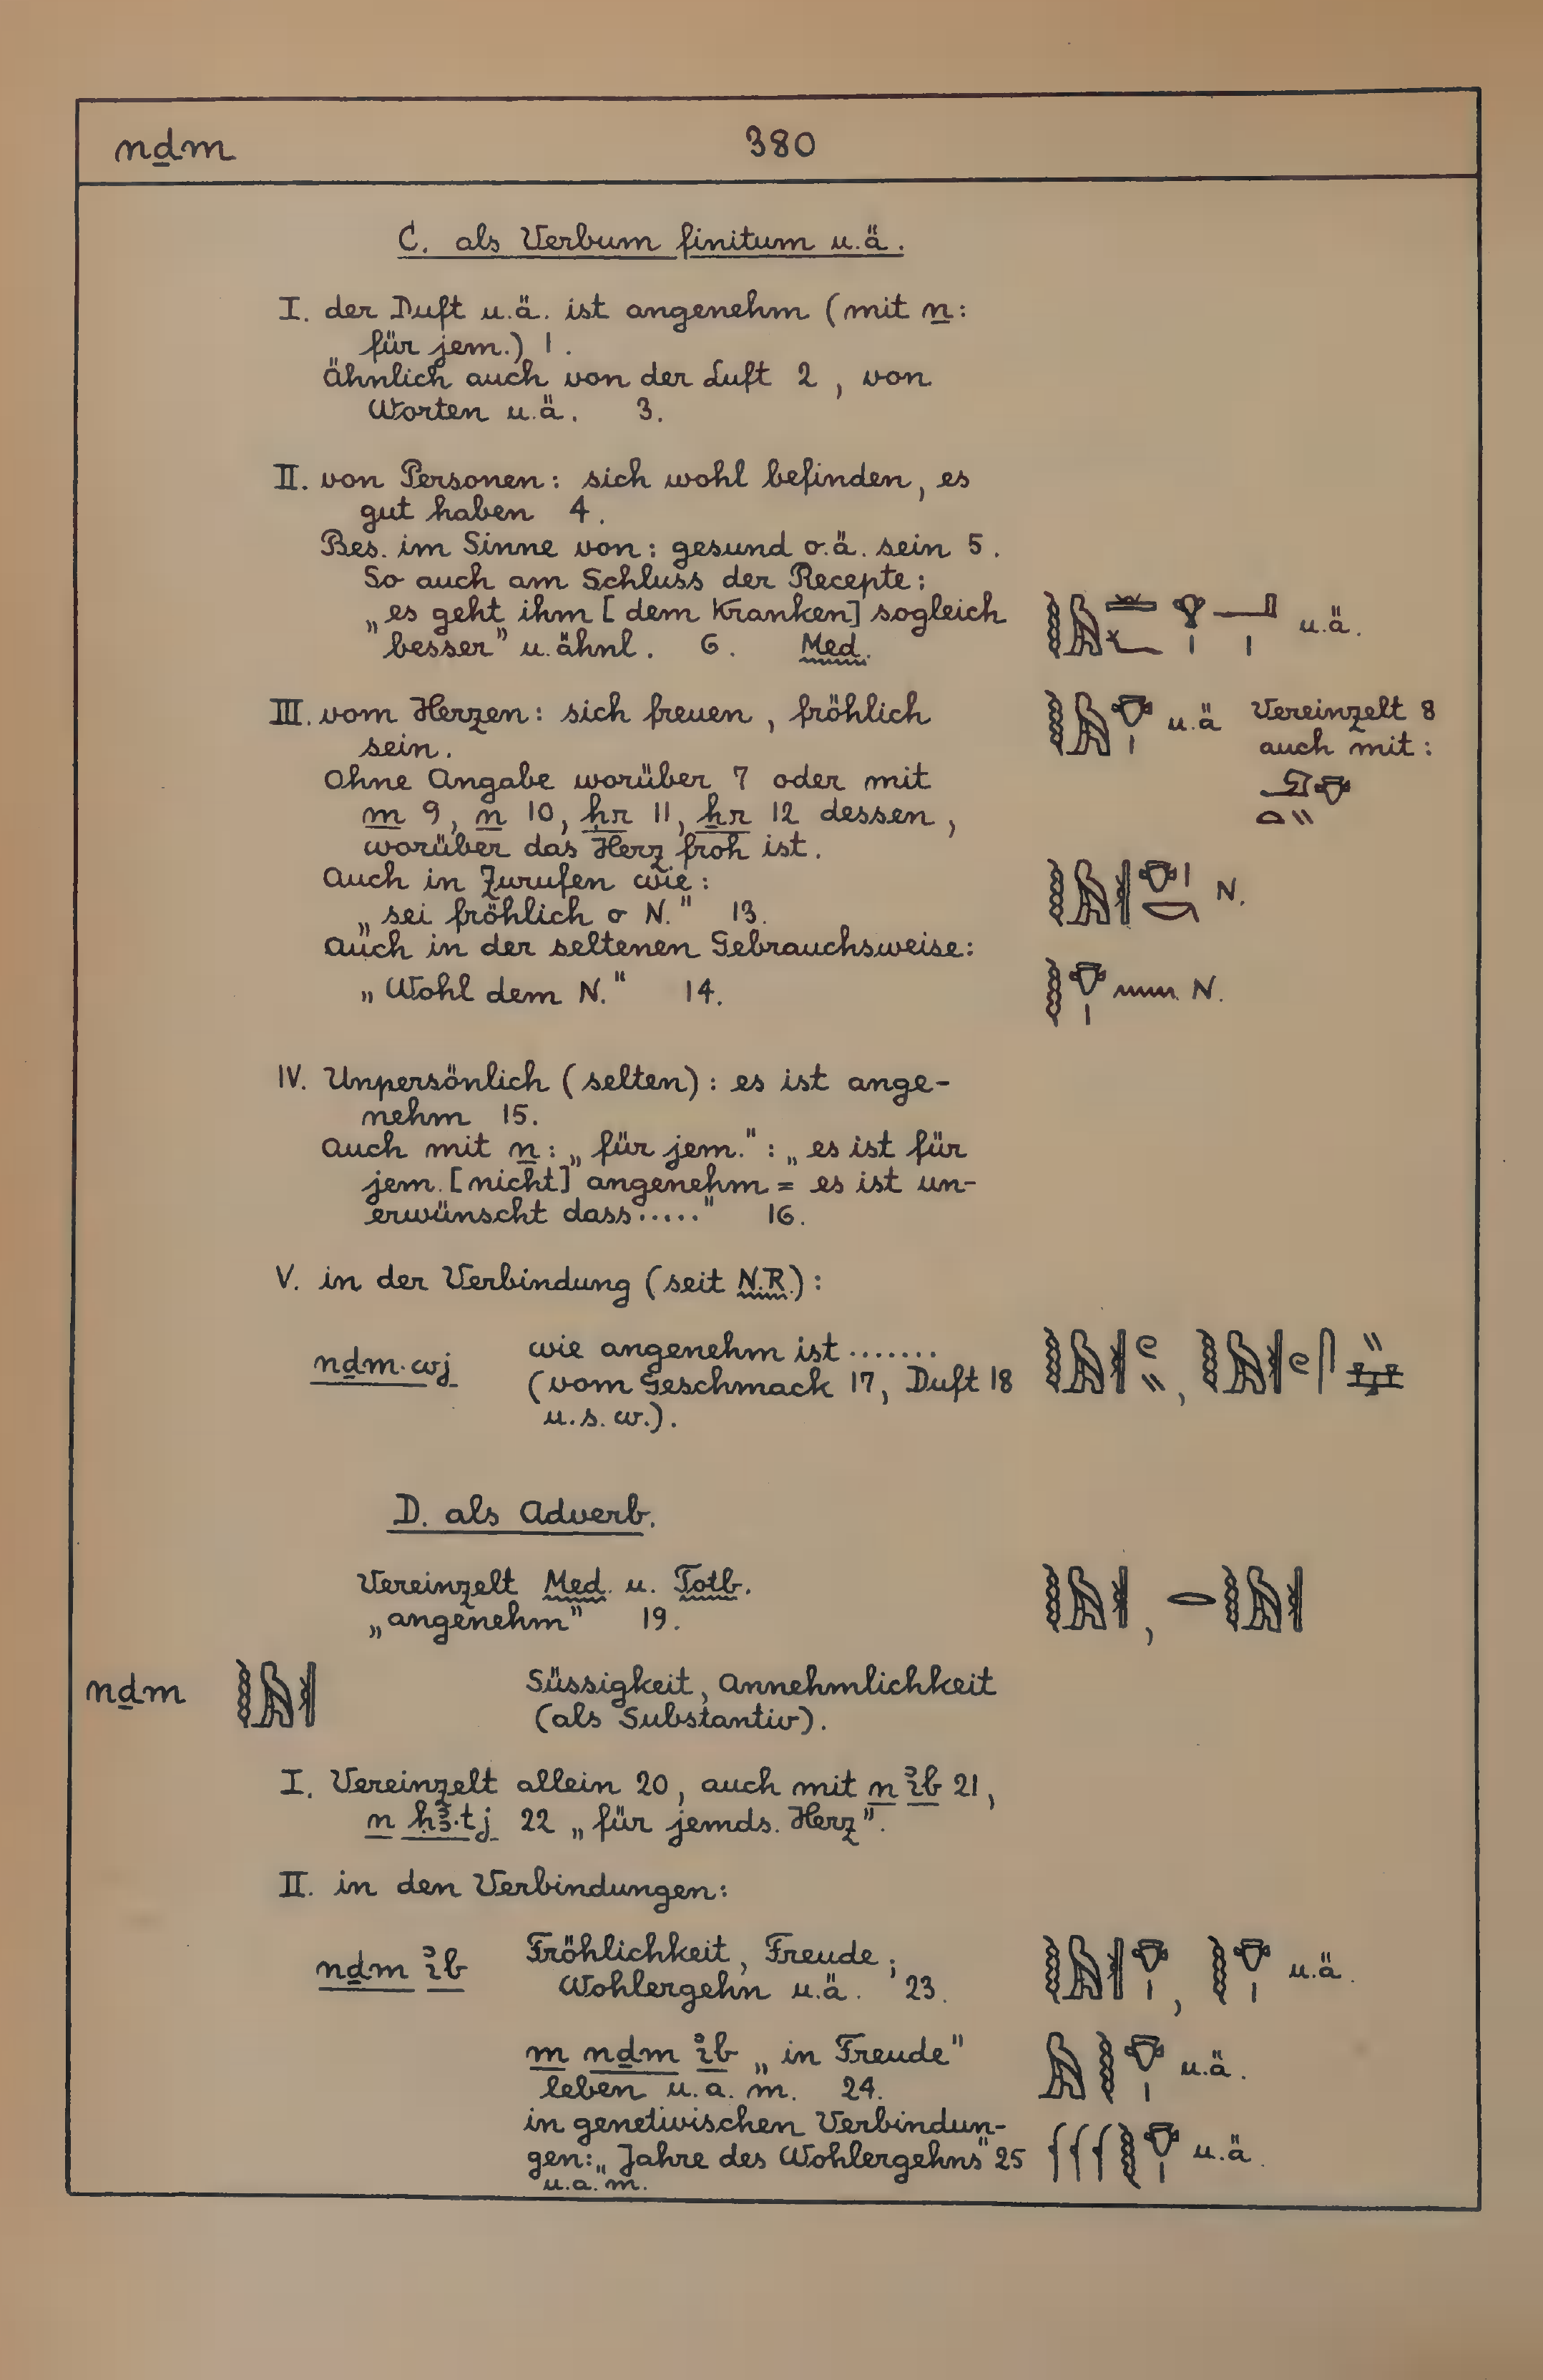 nḏm 380
C. als Verbum finitum u.ä.
I. der Duft u.ä. ist angenehm (mit n:
für jem.) 1.
Ähnlich auch von der Luft 2, von
Worten u.ä. 3.
II. von Personen: sich wohl befinden, es
gut haben 4.
Bes. im Sinne von: gesund o.ä. sein 5.
So auch am Schluss der Recepte:
„es geht ihm [dem Kranken] sogleich
besser" u. ähnl. 6. Med. u.ä.
III. vom Herzen: sich freuen, fröhlich u.ä Vereinzelt 8
sein. auch mit:
Ohne Angabe worüber 7 oder mit
m 9, n 10, ḥr 11, ẖr 12 dessen,
worüber das Herz froh ist.
Auch in Zurufen wie:
„sei fröhlich o N." 13. N.
Auch in der seltenen Gebrauchsweise:
„Wohl dem N." 14. N.
IV. Unpersönlich (selten): es ist ange-
nehm 15.
Auch mit n: „für jem.": „es ist für
jem. [nicht] angenehm = es ist un-
erwünscht dass....." 16.
V. in der Verbindung (seit N.R.):
nḏm·wj wie angenehm ist .......
(vom Geschmack 17, Duft 18
u.s.w.).
D. als Adverb.
Vereinzelt Med. u. Totb.
„angenehm" 19.
nḏm Süssigkeit, Annehmlichkeit
(als Substantiv).
I. Vereinzelt allein 20, auch mit n ı͗b 21,
n ḥꜣ·tj 22 „für jemds. Herz".
II. in den Verbindungen:
nḏm ı͗b Fröhlichkeit, Freude;
Wohlergehn u.ä. 23. u.ä.
m nḏm ı͗b „in Freude"
leben u.a.m. 24. u.ä.
in genetivischen Verbindun-
gen: „Jahre des Wohlergehns" 25 u.ä.
u.a.m.